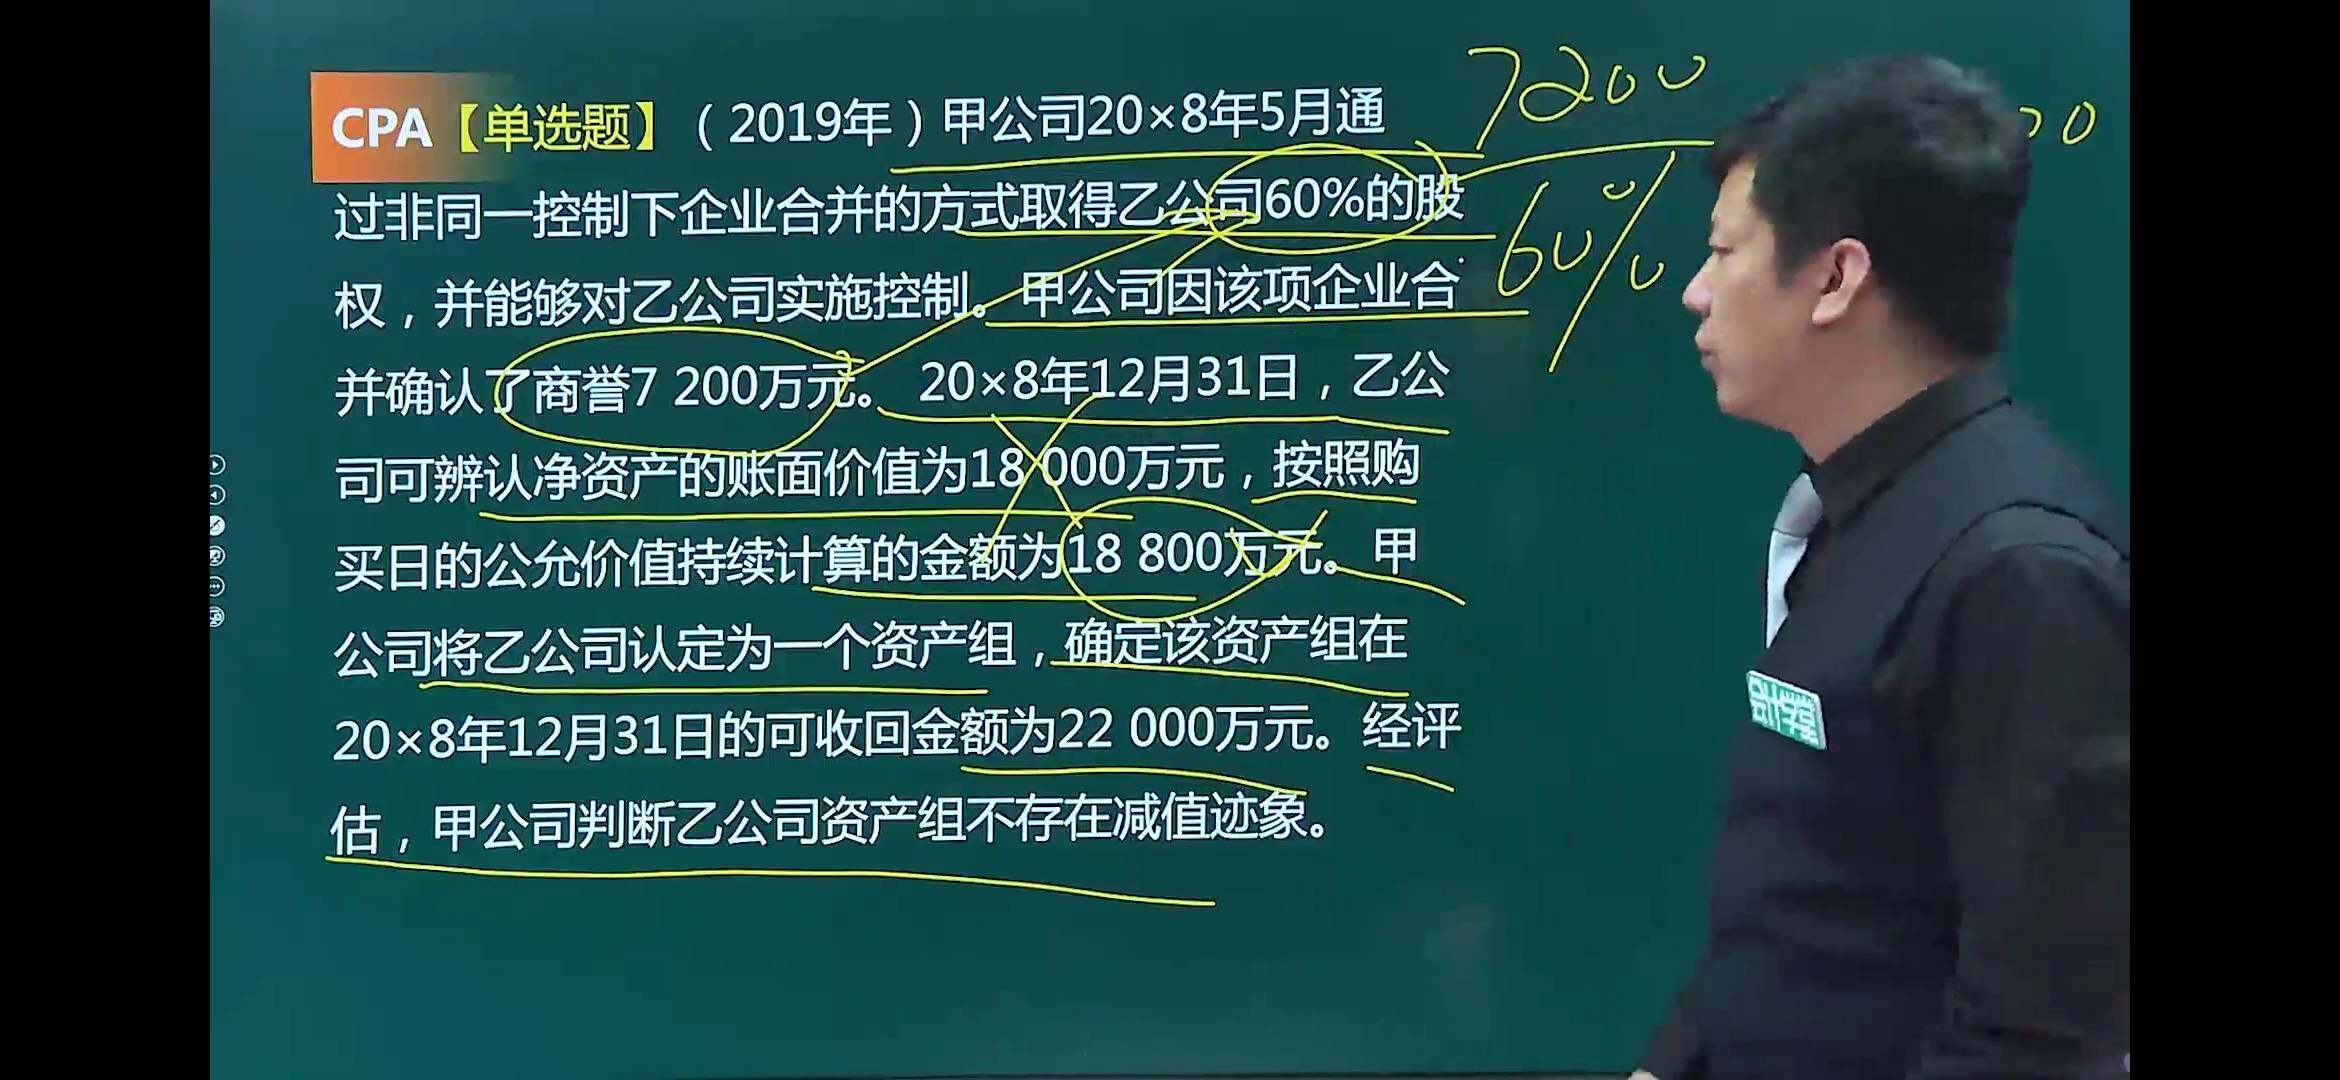 CPA【单选题】（2019年）甲公司20×8年5月通
过非同一控制下企业合并的方式取得乙公司60%的股
权，并能够对乙公司实施控制。甲公司因该项企业合
并确认了商誉7 200万元。 20×8年12月31日，乙公
司可辨认净资产的账面价值为18 000万元，按照购
买日的公允价值持续计算的金额为18 800万元。甲
公司将乙公司认定为一个资产组，确定该资产组在
20×8年12月31日的可收回金额为22 000万元。经评
估，甲公司判断乙公司资产组不存在减值迹象。
7200
60%
会计学堂